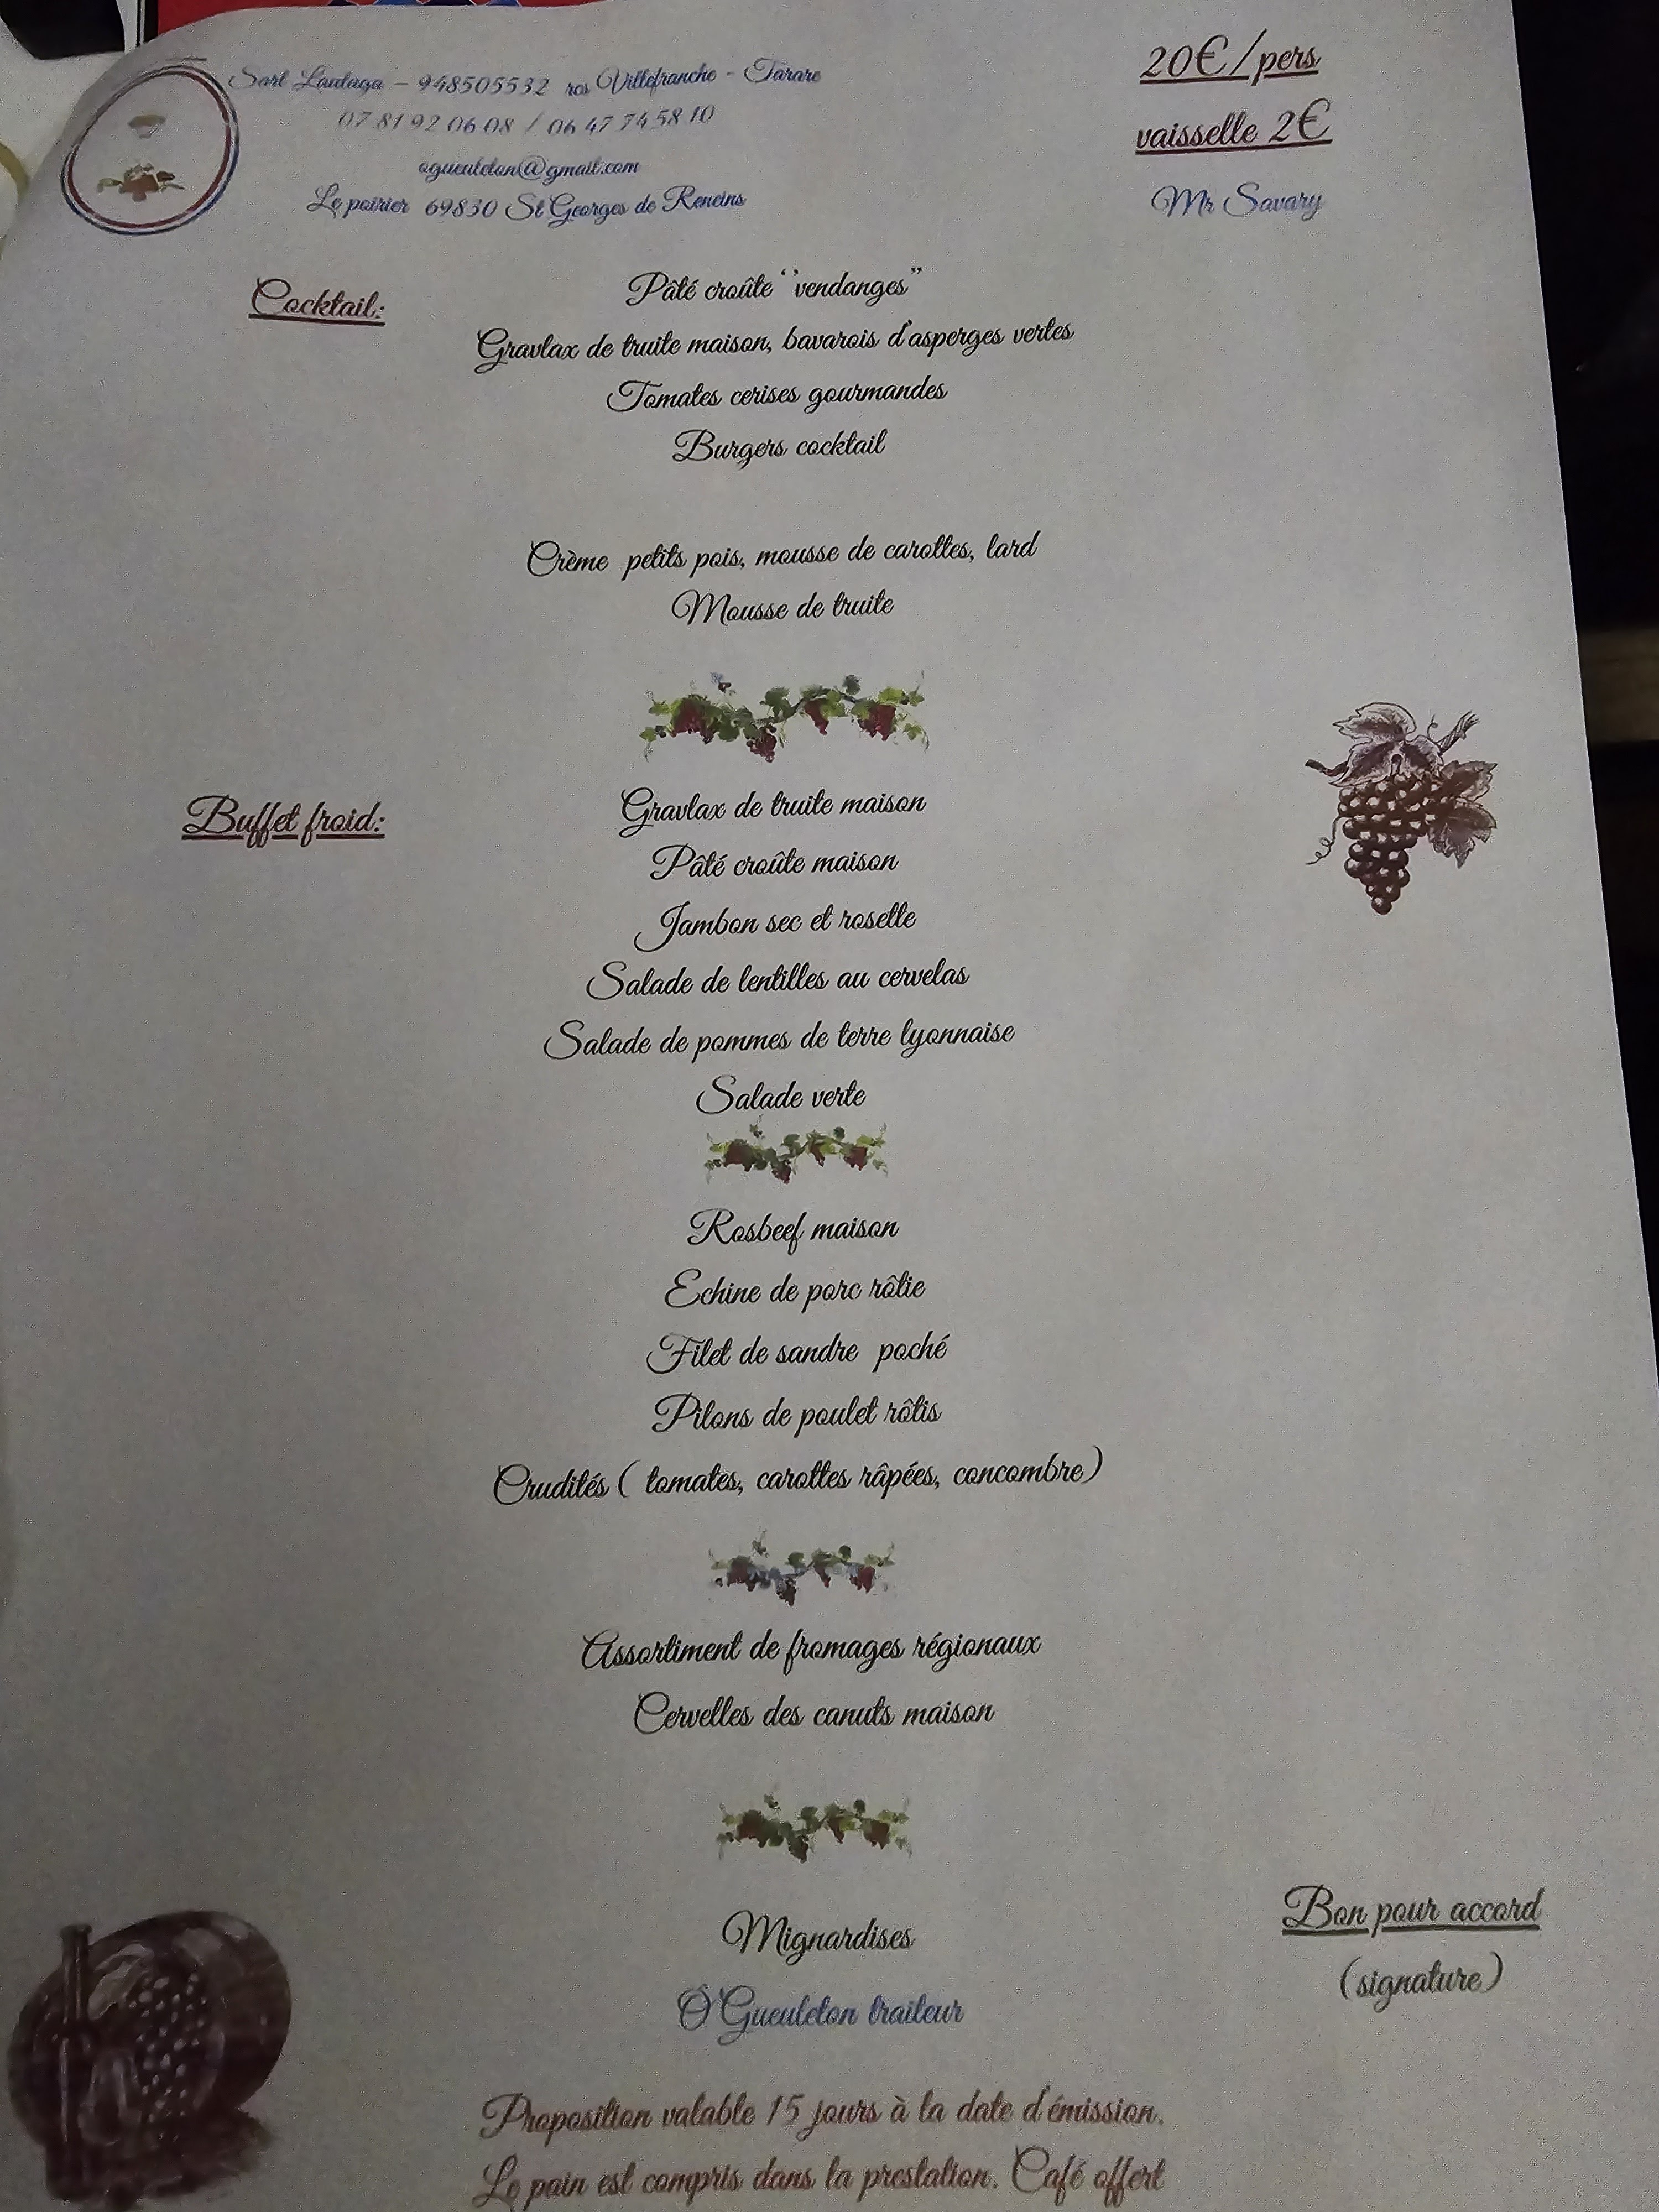 Sarl Lautaga – 948505532 rcs Villefranche - Tarare
07 81 92 06 08 / 06 47 74 58 10
ogueuleton@gmail.com
Le poirier 69830 St Georges de Reneins
20€/pers
vaisselle 2€
Mr Savary
Cocktail:
Pâté croûte ‘’vendanges’’
Gravlax de truite maison, bavarois d'asperges vertes
Tomates cerises gourmandes
Burgers cocktail
Crème petits pois, mousse de carottes, lard
Mousse de truite
Buffet froid:
Gravlax de truite maison
Pâté croûte maison
Jambon sec et rosette
Salade de lentilles au cervelas
Salade de pommes de terre lyonnaise
Salade verte
Rosbeef maison
Echine de porc rôtie
Filet de sandre poché
Pilons de poulet rôtis
Crudités ( tomates, carottes râpées, concombre)
Assortiment de fromages régionaux
Cervelles des canuts maison
Mignardises
Ô'Gueuleton traiteur
Bon pour accord
(signature)
Proposition valable 15 jours à la date d'émission.
Le pain est compris dans la prestation. Café offert